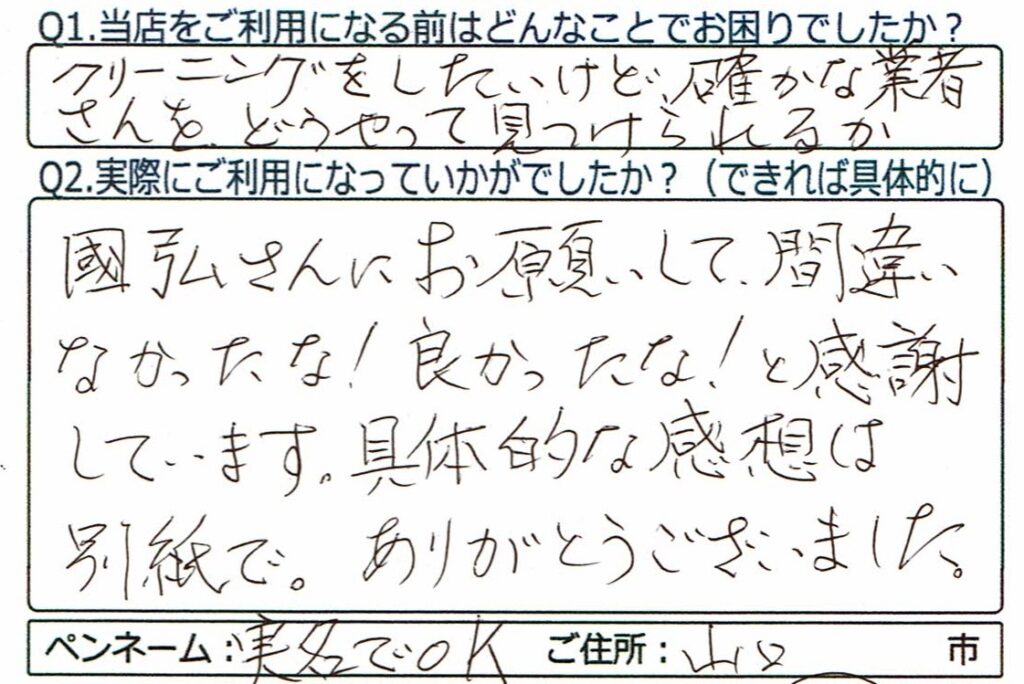 Q1.当店をご利用になる前はどんなことでお困りでしたか？
クリーニングをしたいけど、確かな業者
さんを、どうやって見つけられるか
Q2.実際にご利用になっていかがでしたか？（できれば具体的に）
國弘さんにお願いして、間違い
なかったな！良かったな！と感謝
しています。具体的な感想は
別紙で。ありがとうございました。
ペンネーム：実名でOK ご住所：山口 市